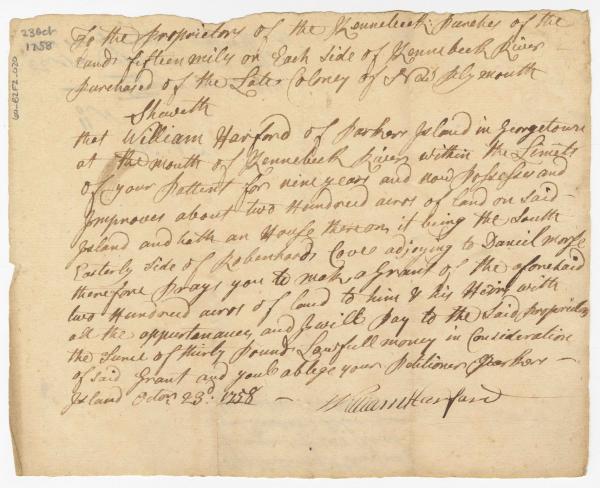 23 Oct
1758
61-82F2.020
To the Proprietors of the Kennebeck Purches of the
Lands fifteen miles on Each Side of Kennebeck River
purchased of the Late Coloney of New Plymouth
Sheweth
that William Harford of Parkers Island in Georgetown
at the mouth of Kennebeck River within the Limets
of your Pattent for nine years and now Possesses and
Improves about two Hundred acres of land on said
Island and hath an House thereon it being the South
Easterly side of Robenhoods Cove adjoying to Daniel Morse
therefore prays you to make a Grant of the aforesaid
two Hundred acres of land to him & his Heirs with
all the appurtenances and I will Pay to the Said proprietors
the Sume of thirty Pounds Lawfull money in Consideration
of said Grant and youl oblege your Petitioner Parkers
Island Octor 23d. 1758 —
William Harford